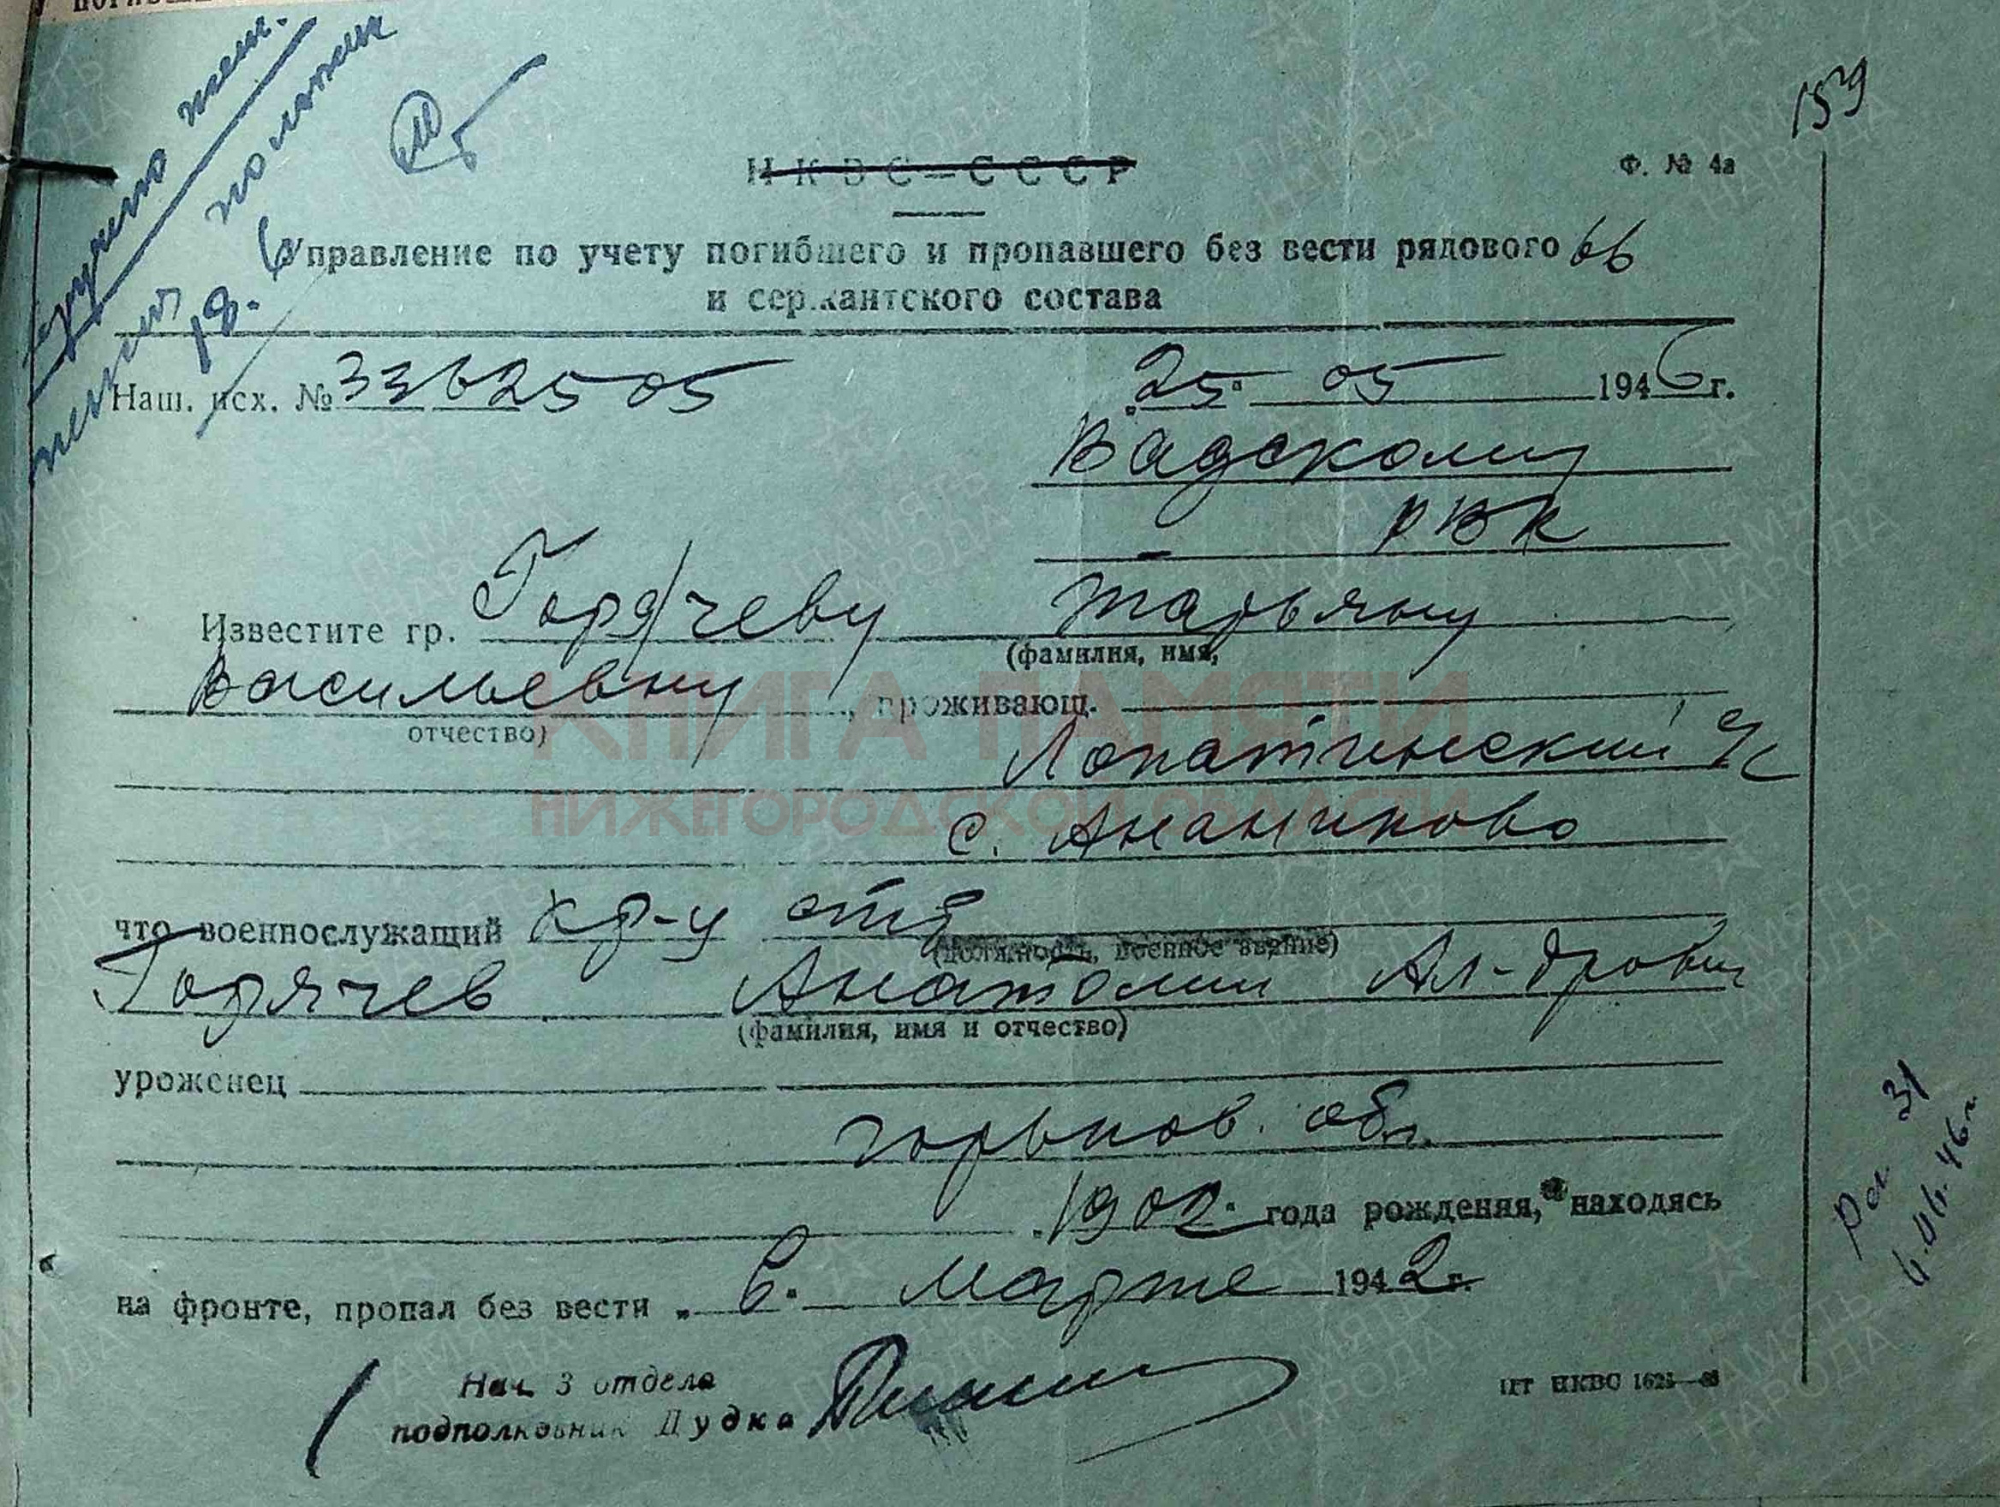 159
Н К В С — С С С Р
Ф. № 4а
Управление по учету погибшего и пропавшего без вести рядового
и сержантского состава
18. 6
Наш. исх. № 3362505
25. 05 1946 г.
Вадскому
РВК
Известите гр. Горячеву Татьяну
(фамилия, имя,
Васильевну, проживающ.
отчество)
Лопатинский
с. Ананиково
что военнослужащий кр-ц
(должность, военное звание)
Горячев Анатолий Ал-дрович
(фамилия, имя и отчество)
уроженец
горьков. обл.
1902. года рождения, находясь
на фронте, пропал без вести „ в. марте 1942 г.
Нач. 3 отдела
подполковник Дудка
31
6.06.46 г.
КНИГА ПАМЯТИ
НИЖЕГОРОДСКОЙ ОБЛАСТИ
ПАМЯТЬ
НАРОДА